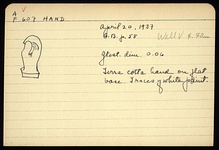 A
P 607 HAND
April 20, 1937
N.B. p. 58 Well V
Gtst. dim. 0.06
Terra cotta hand on flat
base. Traces of white paint.